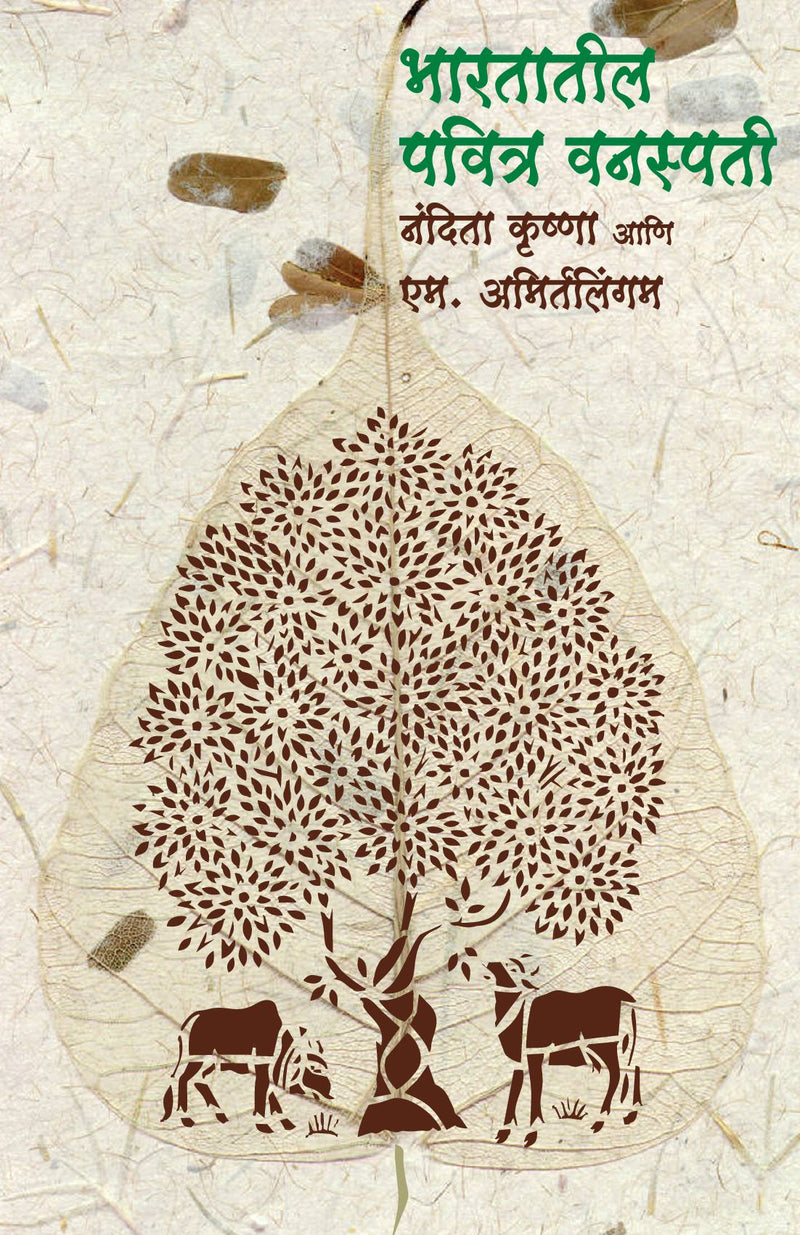 भारतातील
पवित्र वनस्पती
नंदिता कृष्णा आणि
एम. अमिर्तलिंगम